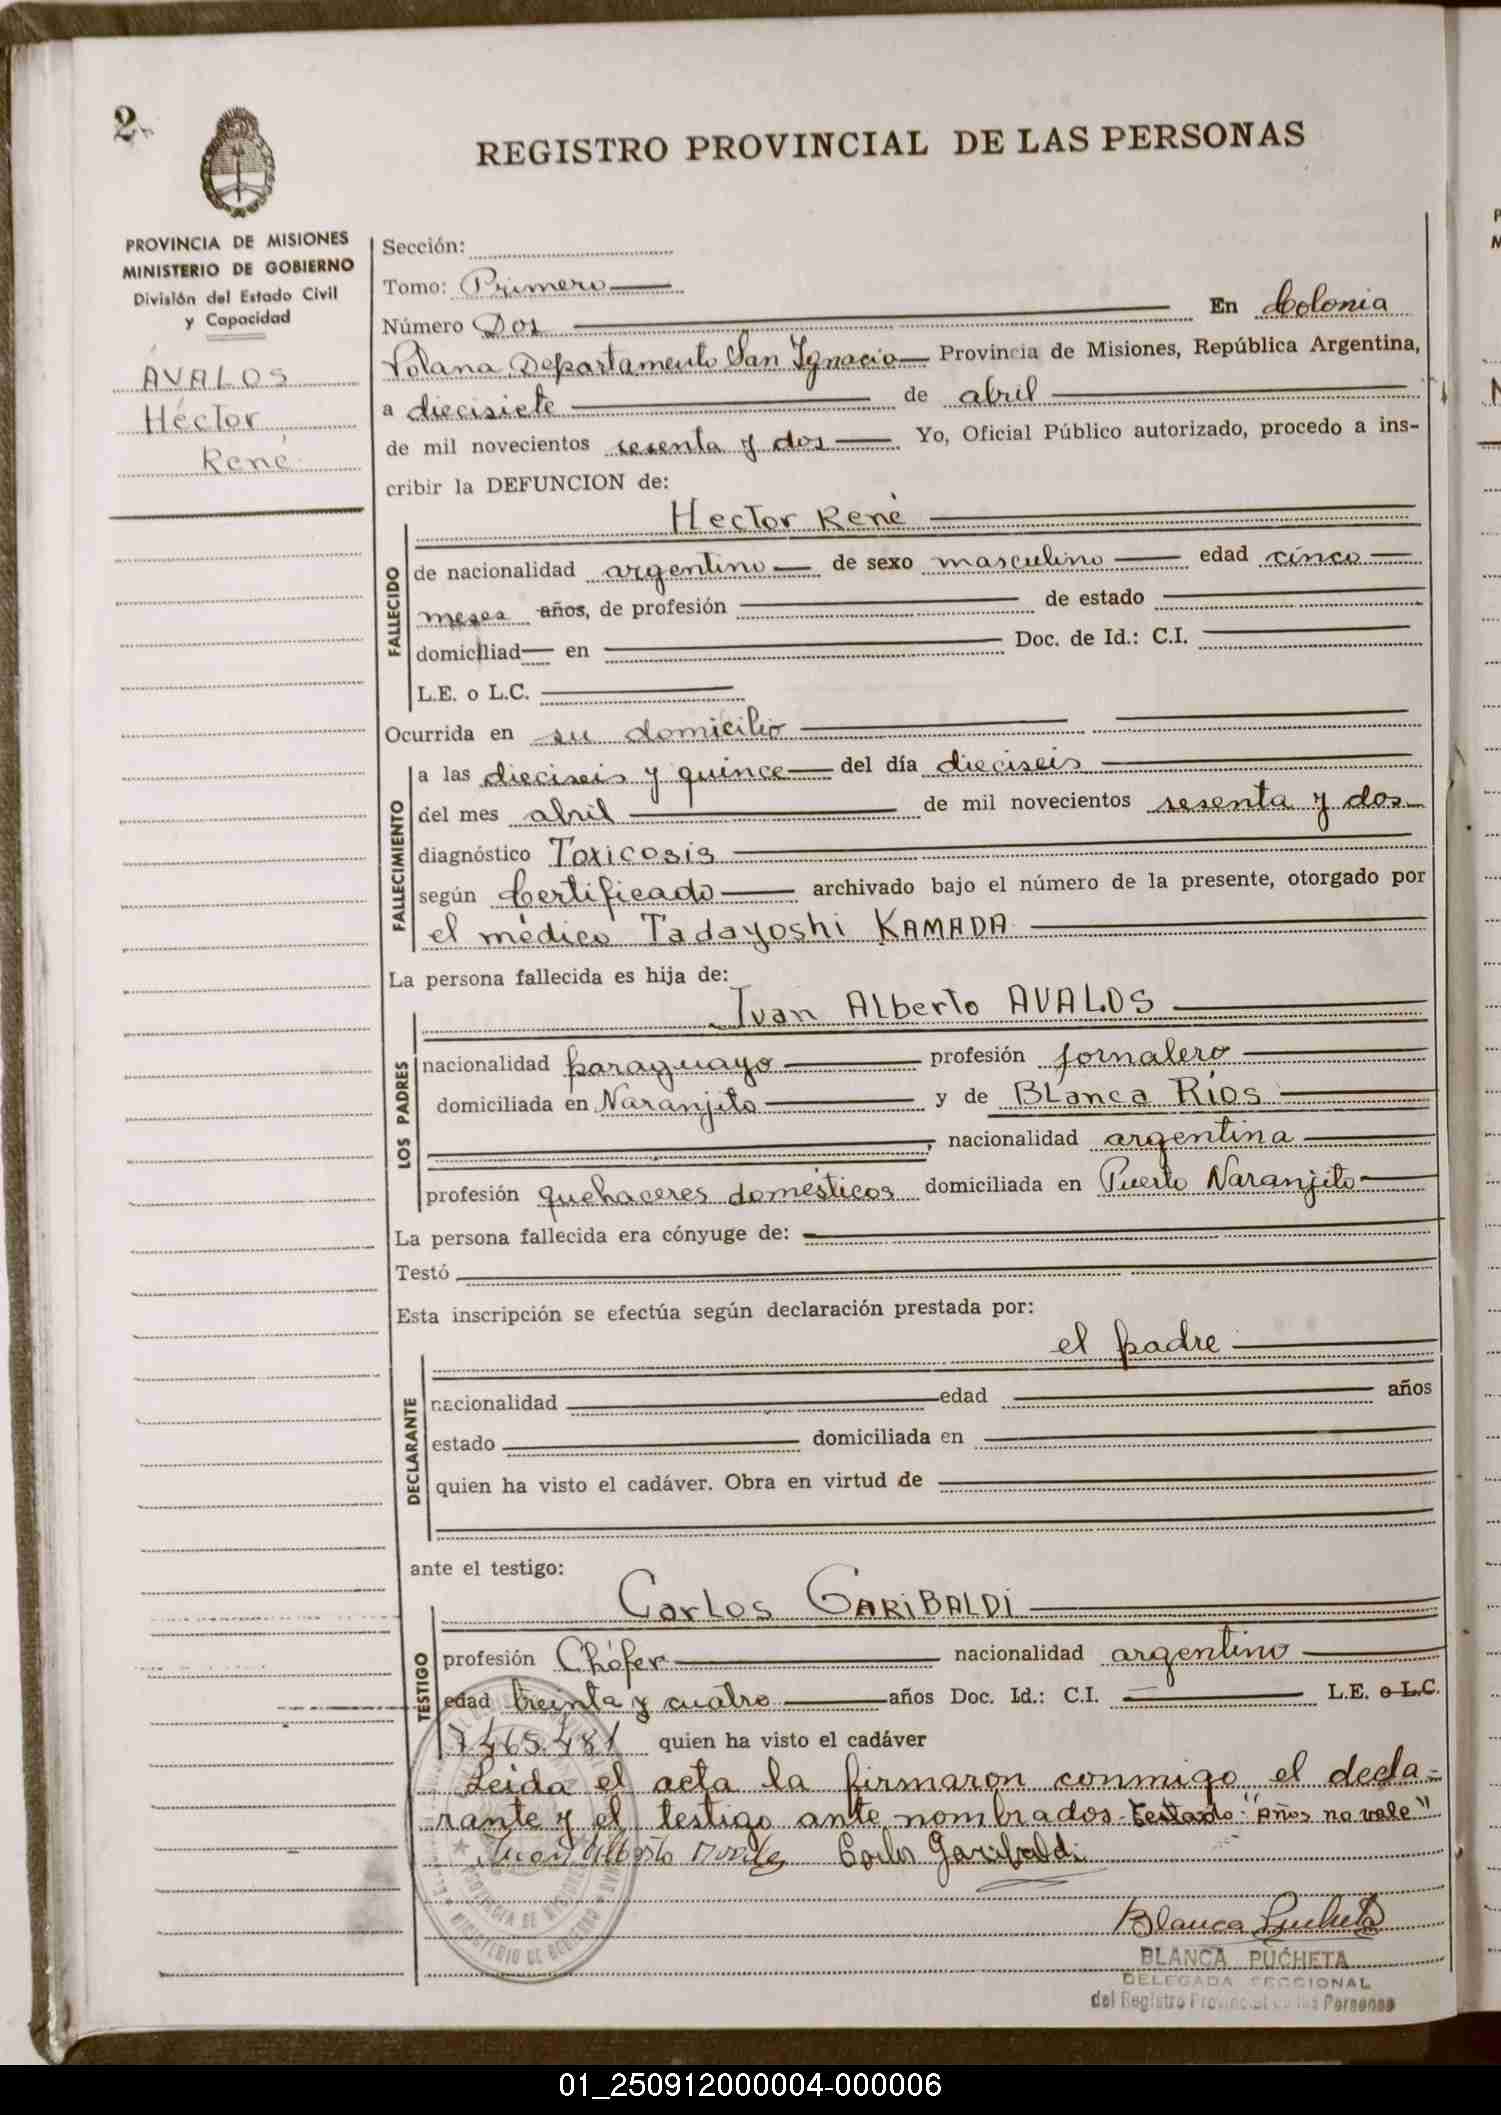 2.
REGISTRO PROVINCIAL DE LAS PERSONAS
PROVINCIA DE MISIONES
MINISTERIO DE GOBIERNO
División del Estado Civil
y Capacidad
AVALOS
Héctor
René
Sección:
Tomo: Primero
Número Dos En Colonia
Polana Departamento San Ignacio Provincia de Misiones, República Argentina,
a diecisiete de abril
de mil novecientos sesenta y dos Yo, Oficial Público autorizado, procedo a ins-
cribir la DEFUNCION de:
Hector René
FALLECIDO
de nacionalidad argentino de sexo masculino edad cinco
meses años, de profesión de estado
domiciliad en Doc. de Id.: C.I.
L.E. o L.C.
Ocurrida en su domicilio
FALLECIMIENTO
a las dieciseis y quince del día dieciseis
del mes abril de mil novecientos sesenta y dos
diagnóstico Toxicosis
según Certificado archivado bajo el número de la presente, otorgado por
el médico Tadayoshi KAMADA
La persona fallecida es hija de:
Ivan Alberto AVALOS
LOS PADRES
nacionalidad paraguayo profesión jornalero
domiciliada en Naranjito y de Blanca Ríos
, nacionalidad argentina
profesión quehaceres domésticos domiciliada en Puerto Naranjito
La persona fallecida era cónyuge de:
Testó
Esta inscripción se efectúa según declaración prestada por:
el padre
DECLARANTE
nacionalidad edad años
estado domiciliada en
quien ha visto el cadáver. Obra en virtud de
ante el testigo:
Carlos GARIBALDI
TESTIGO
profesión Chófer nacionalidad argentino
edad treinta y cuatro años Doc. Id.: C.I. L.E. o L.C.
7465.481 quien ha visto el cadáver
Leida el acta la firmaron conmigo el decla-
rante y el testigo ante nombrados. Testado: "años no vale"
Alberto Carlos Garibaldi
Blanca Pucheta
BLANCA PUCHETA
DELEGADA SECCIONAL
del Registro Provincial de las Personas
MINISTERIO DE GOBIERNO
PROVINCIA DE MISIONES
01_250912000004-000006